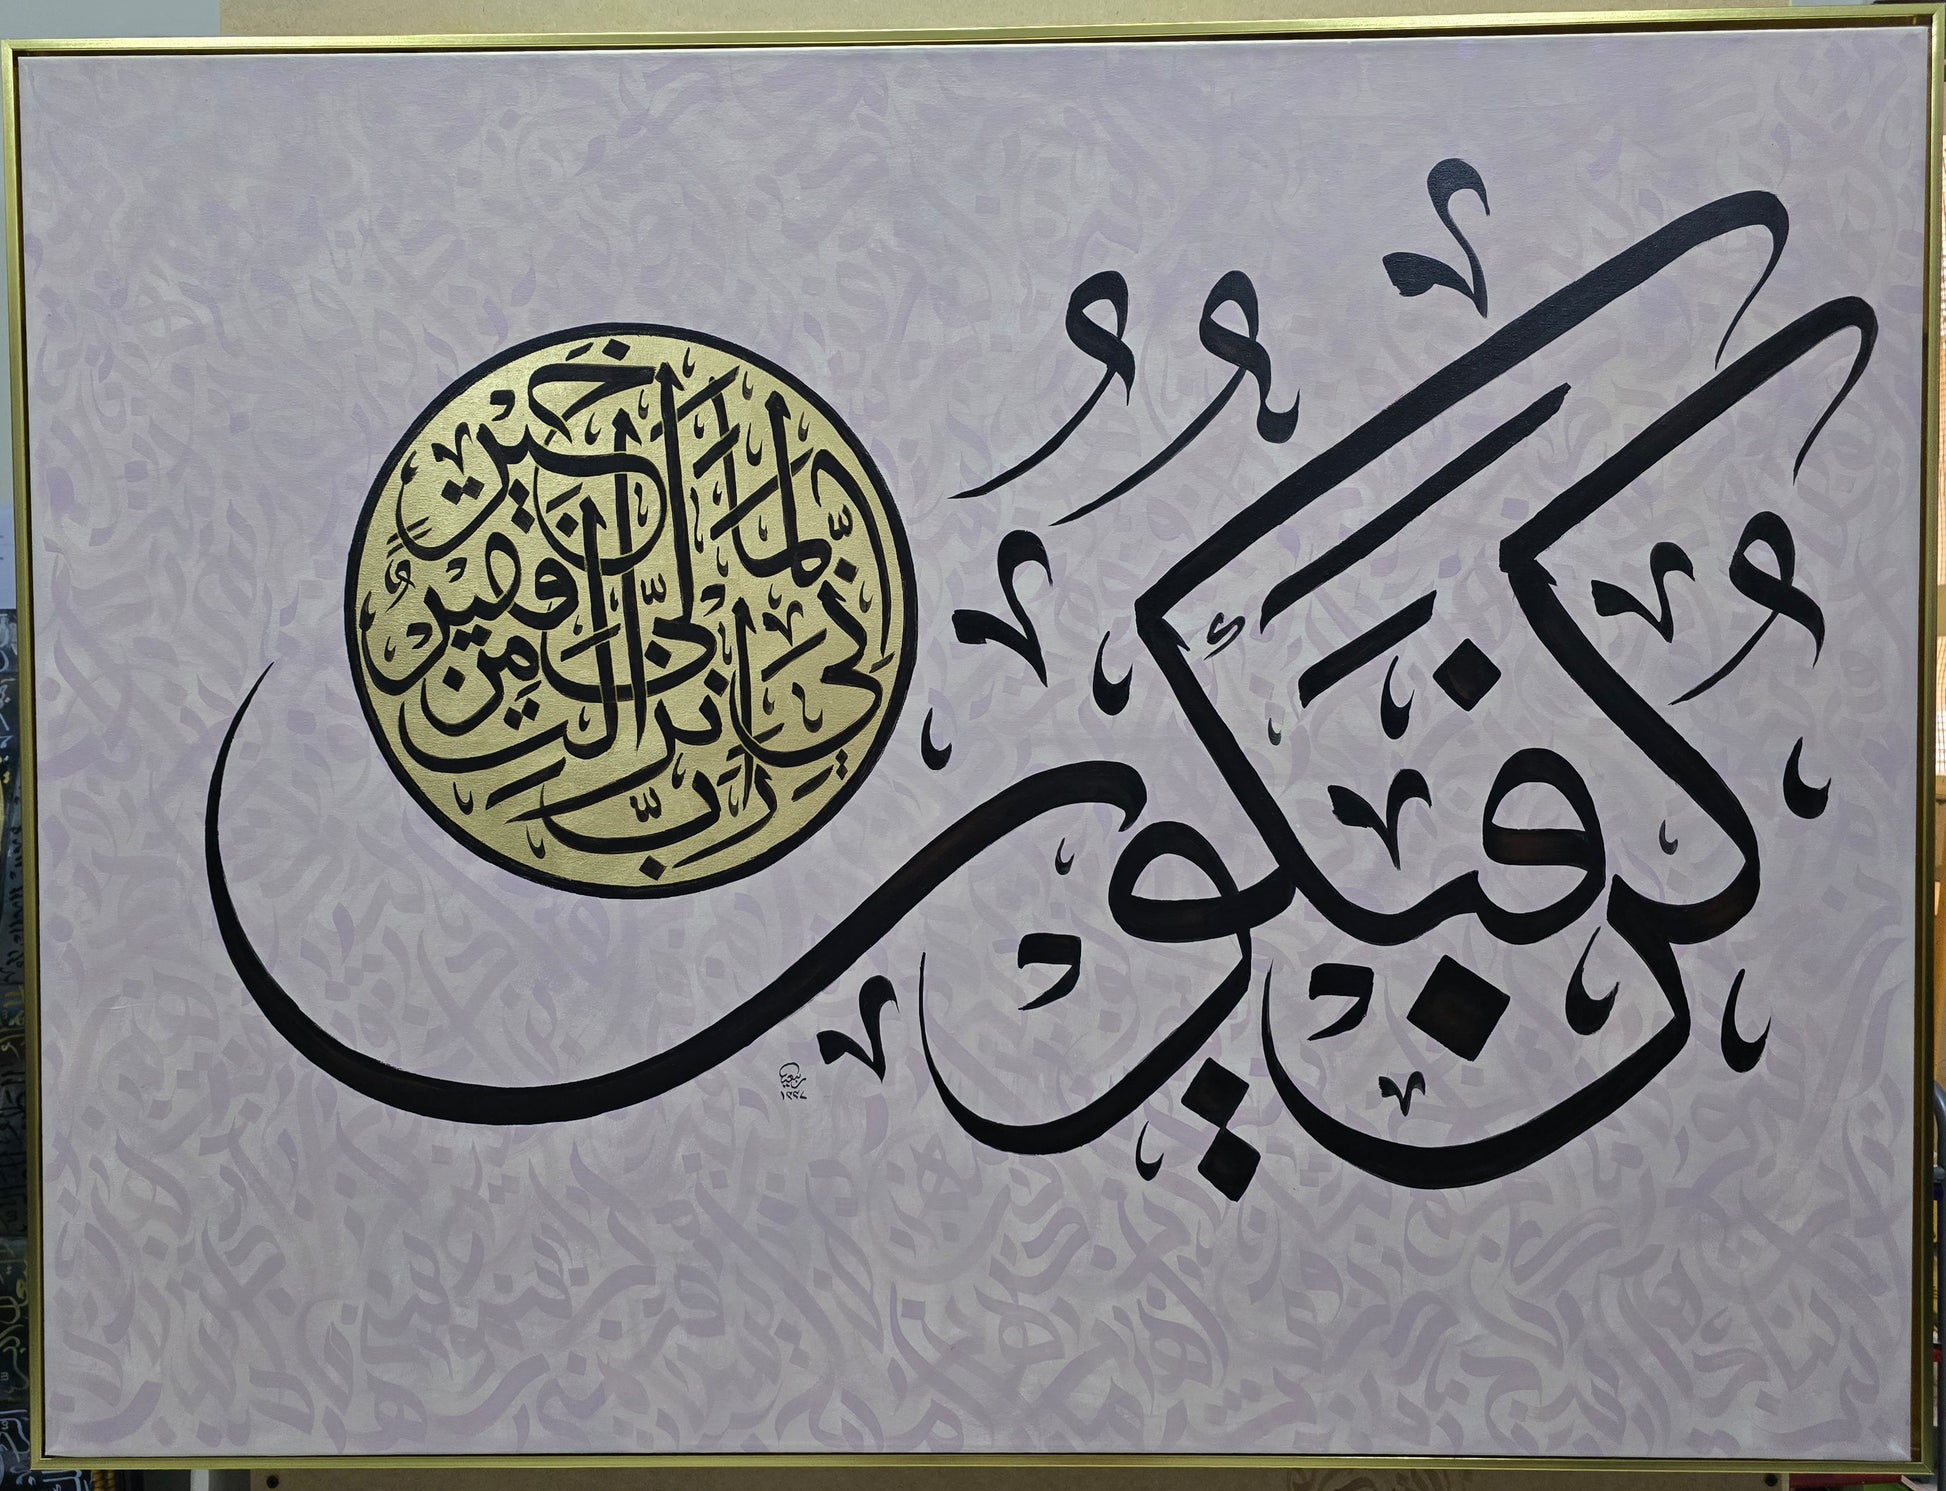 كُنْ فَيَكُونُ
رَبِّ إِنِّي لِمَا أَنْزَلْتَ إِلَيَّ مِنْ خَيْرٍ فَقِيرٌ